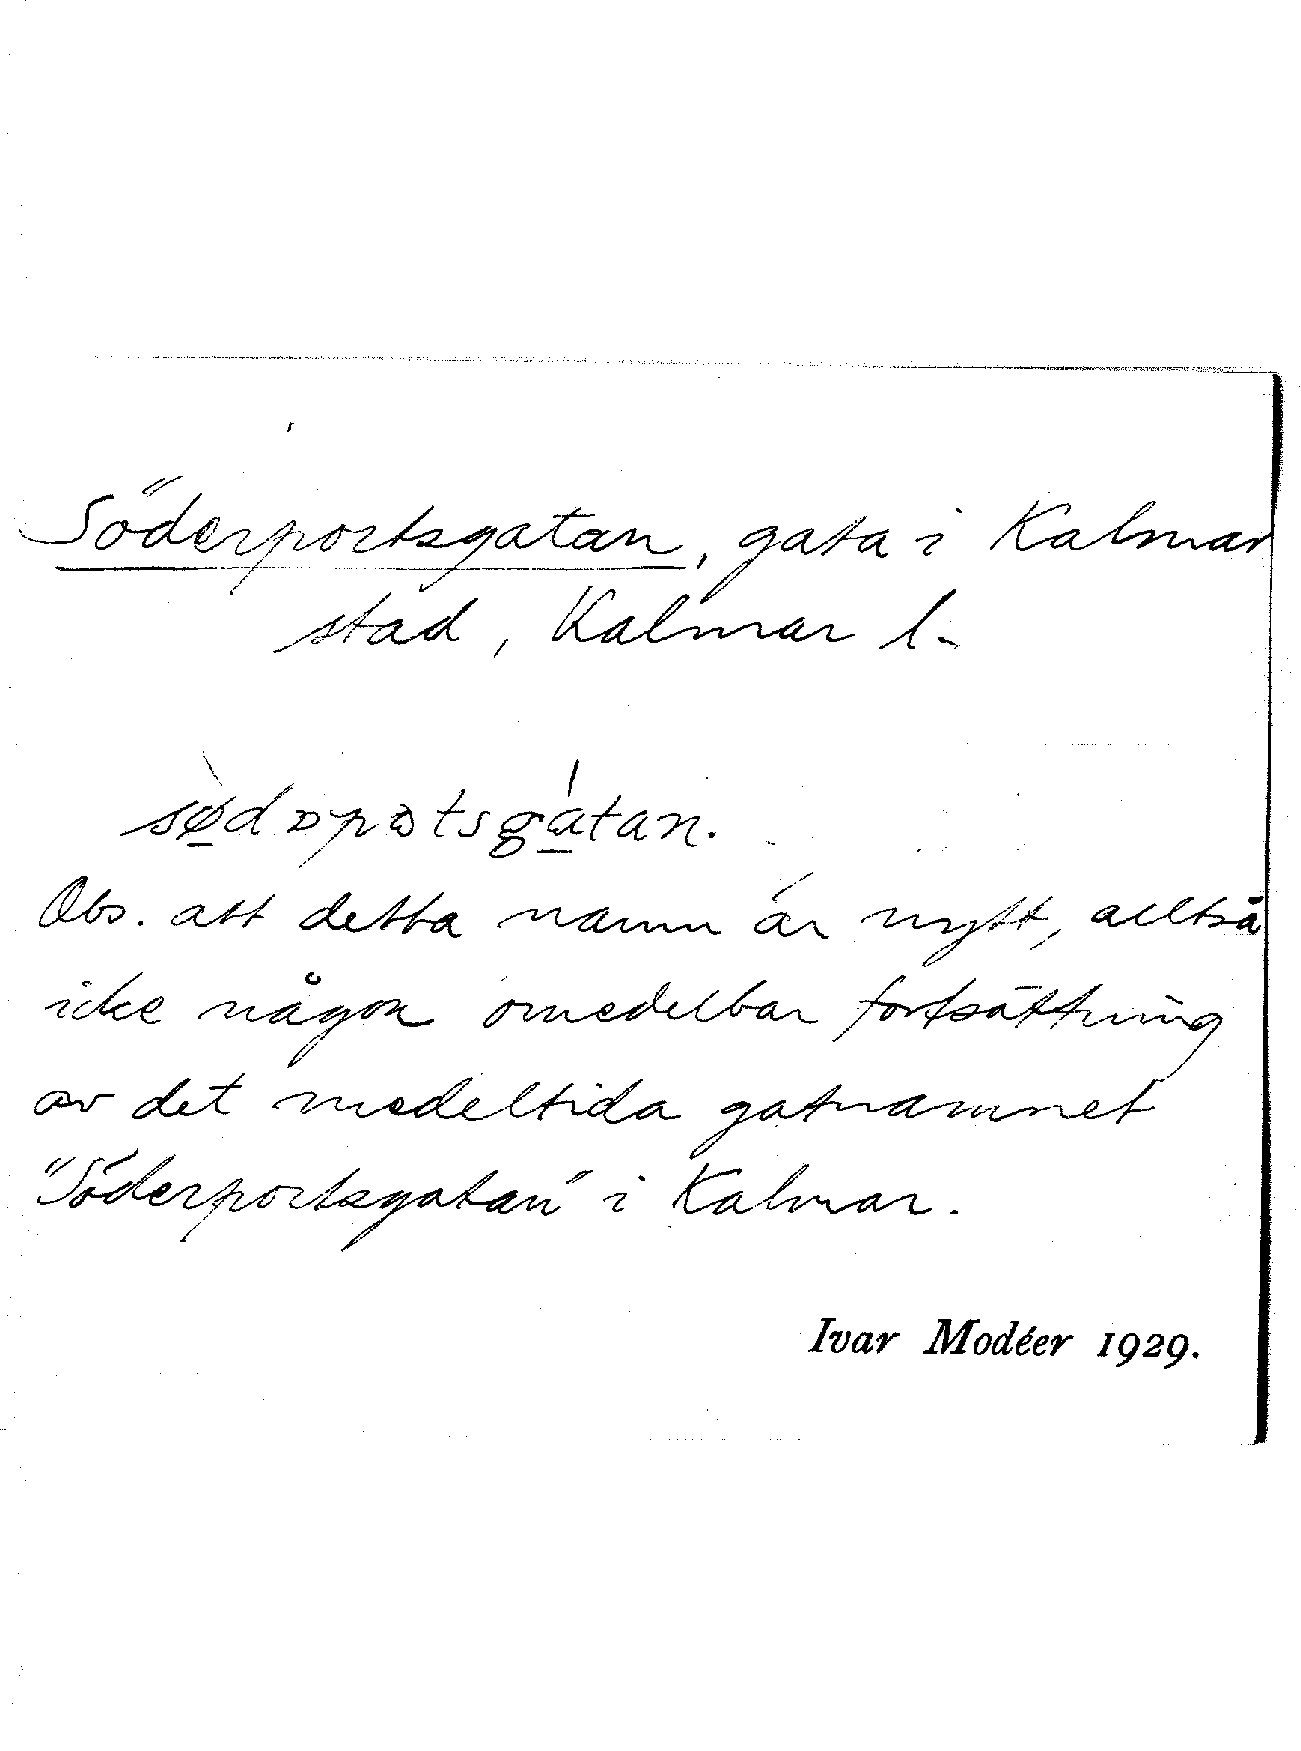 Söderportsgatan, gata i Kalmar
stad, Kalmar l.
Obs. att detta namn är nytt, alltså
icke någon omedelbar fortsättning
av det medeltida gatnamnet
"Söderportsgatan" i Kalmar.
Ivar Modéer 1929.